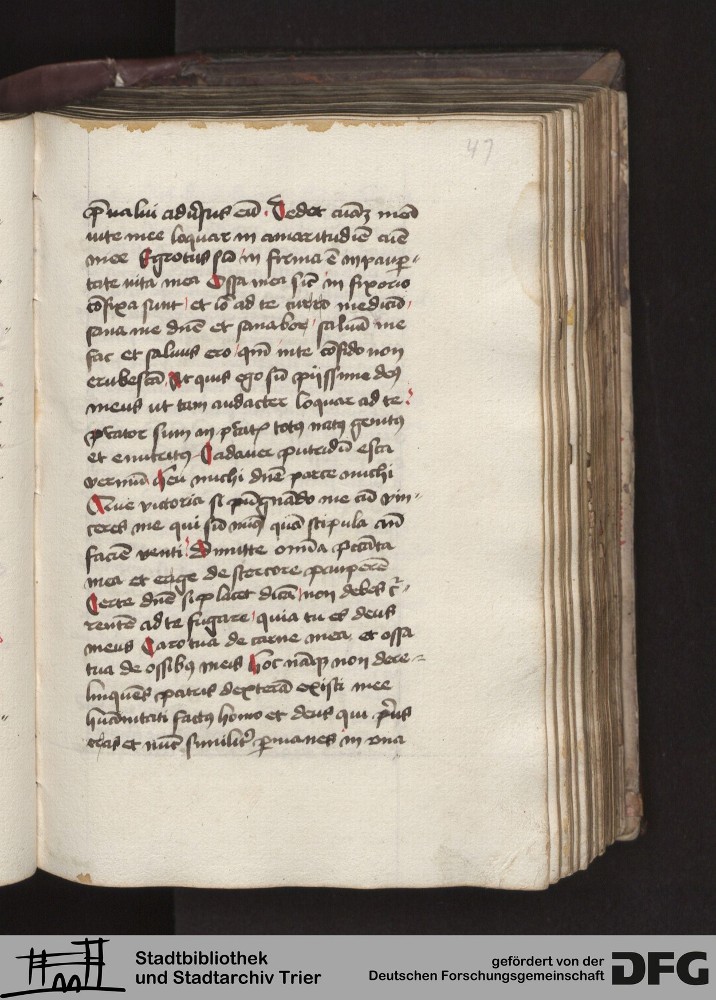 47
p̄ualui adūsus eū. Tedet eñ aīaʒ meā
uite mee loquar in amaritudīe aīe
mee Egrotus sū infirma ē in paup̲-
tate uita mea Ossa mea sic̄ in fixorio
cōfixa sunt et iō ad te curro medicū
sana me dn̄e et sanabor saluū me
fac et saluus ero qm̄ in te cōfido non
erubescā At quis ego sū piissime deꝰ
meus ut tam audacter loquar ad te
pc̄ator sum in pc̄atꝭ totꝰ natꝰ genitꝰ
et enutritꝰ Cadauer putridū esca
vermiū heu michi dn̄e parce michi
Que victoria si pūgnādo me cū vin-
ceres me qui sū minꝰ quā stipula an̄
faciē venti Dimitte om̄ia pc̄cāta
mea et erige de stercore pauperē
Certe dn̄e si placet dicā non debes c̄-
rentē ad te fugare quia tu es deus
meus Caro tua de carne mea et ossa
tua de ossibꝰ meis Hoc nāqꝫ non dere-
linquēs patris dexterā existi mee
humanitati factꝰ homo et deus qui p̄us
eras et nūc similit̄ p̲manes in vna
Stadtbibliothek
und Stadtarchiv Trier
gefördert von der
Deutschen Forschungsgemeinschaft
DFG